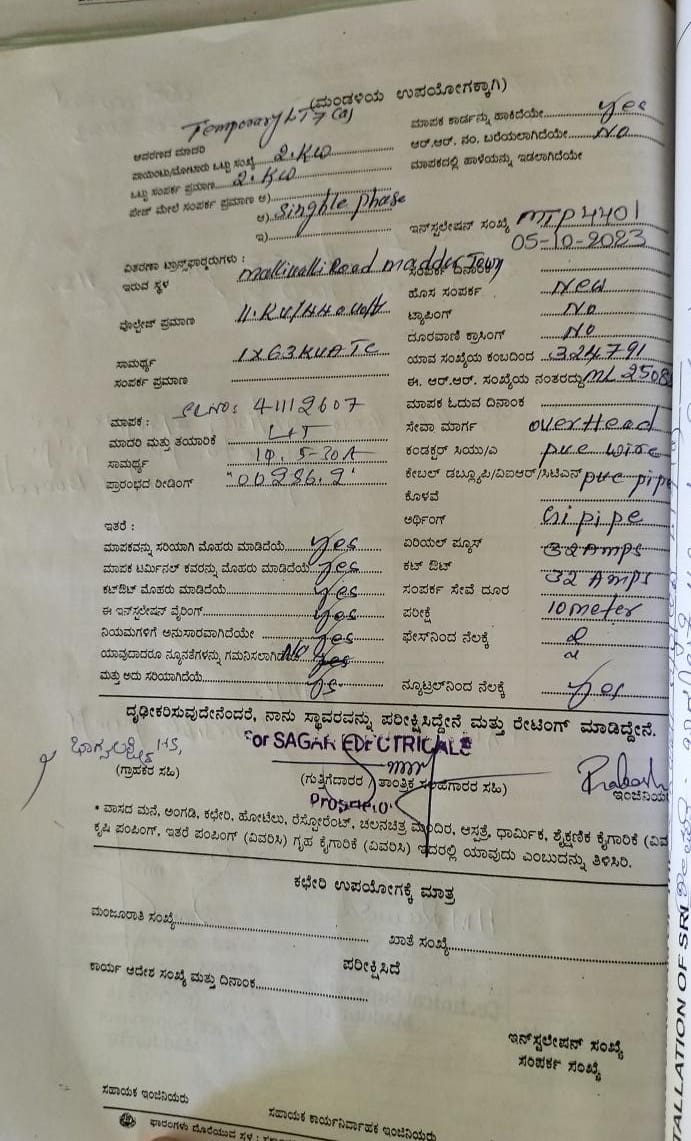 (ಮಂಡಳಿಯ ಉಪಯೋಗಕ್ಕಾಗಿ)
Temporary LT 7 (a)
ಆವರಣದ ಮಾದರಿ
ಪಾಯಿಂಟು/ಮೋಟಾರು ಒಟ್ಟು ಸಂಖ್ಯೆ 2.KW
ಒಟ್ಟು ಸಂಪರ್ಕ ಪ್ರಮಾಣ 2.KW
ಪೇಜ್ ಮೇಲೆ ಸಂಪರ್ಕ ಪ್ರಮಾಣ ಅ)
ಆ) Singhle phase
ಇ)
ವಿತರಣಾ ಟ್ರಾನ್ಸ್‌ಫಾರ್ಮರುಗಳು :
ಇರುವ ಸ್ಥಳ Mallivalli Road maddur Town
ವೋಲ್ಟೇಜ್ ಪ್ರಮಾಣ 11.KV/440 Volt
ಸಾಮರ್ಥ್ಯ 1X63KVA TC
ಸಂಪರ್ಕ ಪ್ರಮಾಣ
ಮಾಪಕ : SLNO: 41112607
ಮಾದರಿ ಮತ್ತು ತಯಾರಿಕೆ L+T
ಸಾಮರ್ಥ್ಯ 1Φ. 5-30A
ಪ್ರಾರಂಭದ ರೀಡಿಂಗ್ "00286.2"
ಇತರೆ :
ಮಾಪಕವನ್ನು ಸರಿಯಾಗಿ ಮೊಹರು ಮಾಡಿದೆಯೆ yes
ಮಾಪಕ ಟರ್ಮಿನಲ್ ಕವರನ್ನು ಮೊಹರು ಮಾಡಿದೆಯೆ yes
ಕಟ್‌ಔಟ್ ಮೊಹರು ಮಾಡಿದೆಯೆ yes
ಈ ಇನ್‌ಸ್ಟಲೇಷನ್ ವೈರಿಂಗ್ yes
ನಿಯಮಗಳಿಗೆ ಅನುಸಾರವಾಗಿದೆಯೇ yes
ಯಾವುದಾದರೂ ನ್ಯೂನತೆಗಳನ್ನು ಗಮನಿಸಲಾಗಿದೆಯೆ No yes
ಮತ್ತು ಅದು ಸರಿಯಾಗಿದೆಯೆ yes
ಮಾಪಕ ಕಾರ್ಡನ್ನು ಹಾಕಿದೆಯೇ yes
ಆರ್.ಆರ್. ನಂ. ಬರೆಯಲಾಗಿದೆಯೇ NO
ಮಾಪಕದಲ್ಲಿ ಹಾಳೆಯನ್ನು ಇಡಲಾಗಿದೆಯೇ
ಇನ್‌ಸ್ಟಲೇಷನ್ ಸಂಖ್ಯೆ MTP4401
ಸಂಪರ್ಕ ದಿನಾಂಕ 05-10-2023
ಹೊಸ ಸಂಪರ್ಕ New
ಟ್ಯಾಪಿಂಗ್ NO
ದೂರವಾಣಿ ಕ್ರಾಸಿಂಗ್ NO
ಯಾವ ಸಂಖ್ಯೆಯ ಕಂಬದಿಂದ 324791
ಈ. ಆರ್.ಆರ್. ಸಂಖ್ಯೆಯ ನಂತರದ್ದು ML 2508
ಮಾಪಕ ಓದುವ ದಿನಾಂಕ
ಸೇವಾ ಮಾರ್ಗ overHead
ಕಂಡಕ್ಟರ್ ಸಿಯು/ಎ pvc wire
ಕೇಬಲ್ ಡಬ್ಲ್ಯೂಪಿ/ವಿಐಆರ್/ಸಿಟಿಎಸ್ pvc pipe
ಕೊಳವೆ
ಅರ್ಥಿಂಗ್ Gi pipe
ಏರಿಯಲ್ ಫ್ಯೂಸ್ 32 Amps
ಕಟ್ ಔಟ್ 32 Amps
ಸಂಪರ್ಕ ಸೇವೆ ದೂರ
ಪರೀಕ್ಷೆ 10meter
ಫೇಸ್‌ನಿಂದ ನೆಲಕ್ಕೆ
ನ್ಯೂಟ್ರಲ್‌ನಿಂದ ನೆಲಕ್ಕೆ yes
ದೃಢೀಕರಿಸುವುದೇನೆಂದರೆ, ನಾನು ಸ್ಥಾವರವನ್ನು ಪರೀಕ್ಷಿಸಿದ್ದೇನೆ ಮತ್ತು ರೇಟಿಂಗ್ ಮಾಡಿದ್ದೇನೆ.
For SAGAR ELECTRICALS
ಭಾಗ್ಯಲಕ್ಷ್ಮಿ H.S,
(ಗ್ರಾಹಕರ ಸಹಿ)
(ಗುತ್ತಿಗೆದಾರರ / ತಾಂತ್ರಿಕ ಸಲಹಗಾರರ ಸಹಿ)
Proprietor
Prakash
ಇಂಜಿನಿಯರ
* ವಾಸದ ಮನೆ, ಅಂಗಡಿ, ಕಛೇರಿ, ಹೋಟೆಲು, ರೆಸ್ಟೋರೆಂಟ್, ಚಲನಚಿತ್ರ ಮಂದಿರ, ಆಸ್ಪತ್ರೆ, ಧಾರ್ಮಿಕ, ಶೈಕ್ಷಣಿಕ ಕೈಗಾರಿಕೆ (ವಿವ
ಕೃಷಿ ಪಂಪಿಂಗ್, ಇತರೆ ಪಂಪಿಂಗ್ (ವಿವರಿಸಿ) ಗೃಹ ಕೈಗಾರಿಕೆ (ವಿವರಿಸಿ) ಇದರಲ್ಲಿ ಯಾವುದು ಎಂಬುದನ್ನು ತಿಳಿಸಿರಿ.
ಕಛೇರಿ ಉಪಯೋಗಕ್ಕೆ ಮಾತ್ರ
ಮಂಜೂರಾತಿ ಸಂಖ್ಯೆ
ಖಾತೆ ಸಂಖ್ಯೆ
ಪರೀಕ್ಷಿಸಿದೆ
ಕಾರ್ಯ ಆದೇಶ ಸಂಖ್ಯೆ ಮತ್ತು ದಿನಾಂಕ
ಇನ್‌ಸ್ಟಲೇಷನ್ ಸಂಖ್ಯೆ
ಸಂಪರ್ಕ ಸಂಖ್ಯೆ
ಸಹಾಯಕ ಇಂಜಿನಿಯರು
ಸಹಾಯಕ ಕಾರ್ಯನಿರ್ವಾಹಕ ಇಂಜಿನಿಯರು
ಫಾರಂಗಳು ದೊರೆಯುವ ಸ್ಥಳ :
TALLATION OF SRI